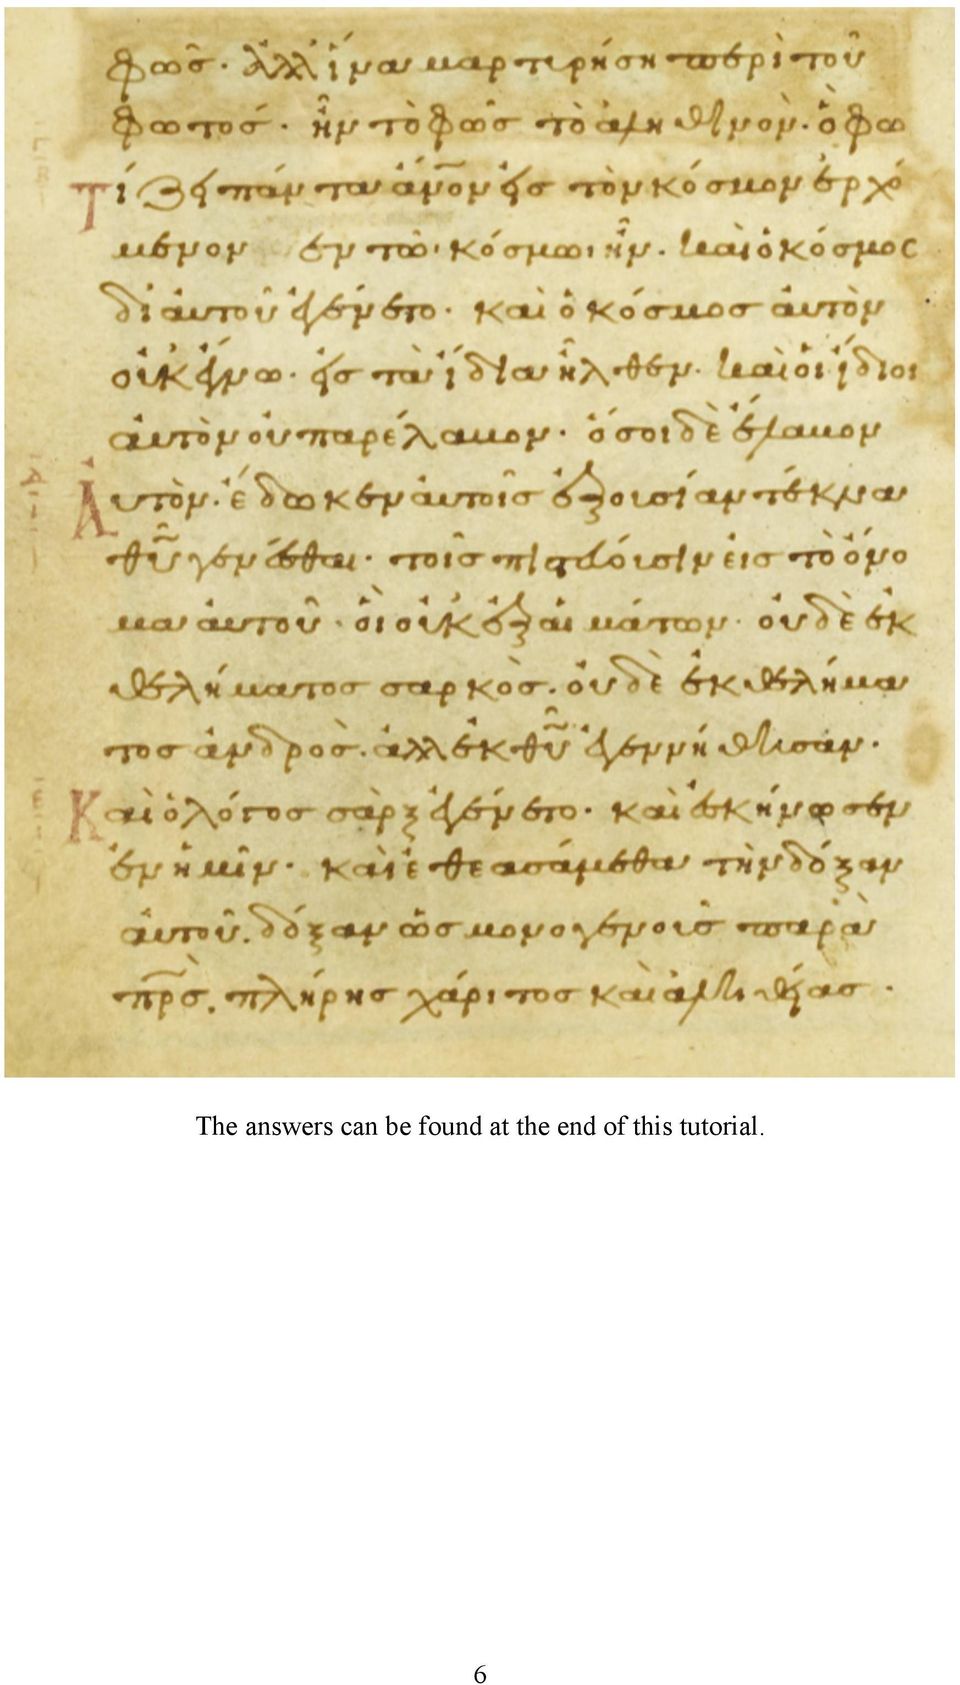 φῶς· ἀλλ ἵνα μαρτυρήση περὶ τοῦ
φωτός· ἦν τὸ φῶς τὸ ἀληθινὸν· ὃ φω
τίζει πάντα ἄνον εἰς τὸν κόσμον ἐρχό
μενον ἐν τῶ κόσμωι ἦν· καὶ ὁ κόσμος
δι αὐτοῦ ἐγένετο· καὶ ὁ κόσμος ἀυτὸν
οὐκ ἔγνω· εἰς τὰ ἴδια ἦλθεν· καὶ οἱ ἴδιοι
ἀυτὸν οὐ παρέλαβον· ὅσοι δὲ ἔλαβον
Αυτὸν· ἔδωκεν ἀυτοῖς ἐξουσίαν τέκνα
θῦ γενέσθαι· τοῖς πιστεύουσιν εἰς τὸ ὄνο
μα ἀυτοῦ· οἳ οὐκ ἐξ αἱμάτων· οὐδὲ ἐκ
θελήματος σαρκὸς· οὐδὲ ἐκ θελήμα
τος ἀνδρὸς· ἀλλ ἐκ θῦ ἐγεννήθησαν·
Καὶ ὁ λόγος σὰρξ ἐγένετο· καὶ ἐσκήνωσεν
ἐν ἡμῖν· καὶ ἐθεασάμεθα τὴν δόξαν
ἀυτοῦ· δόξαν ὡς μονογενοῦς παρὰ
πρς· πλήρης χάριτος καὶ ἀληθείας·
The answers can be found at the end of this tutorial.
6